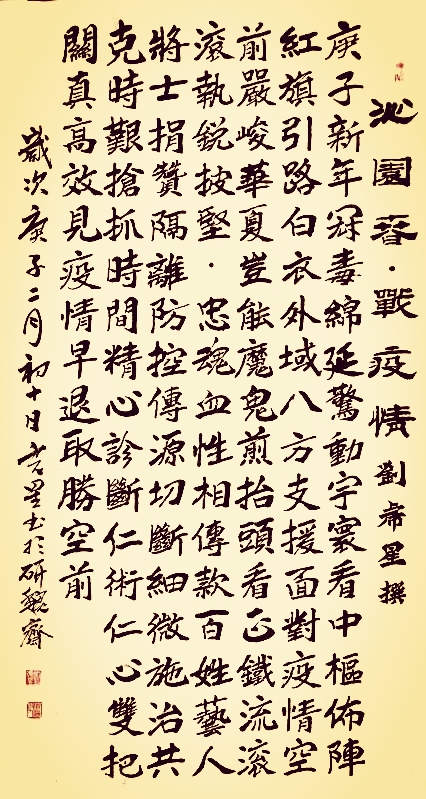 沁園春·戰疫情 劉希星撰
庚子新年冠毒綿延驚動宇寰看中樞佈陣
紅旗引路白衣外域八方支援面對疫情空
前嚴峻華夏豈能魔鬼煎抬頭看正鐵流滾
滾執銳披堅·忠魂血性相傳款百姓藝人
將士捐贊隔離防控傳源切斷細微施治共
克時艱搶抓時間精心診斷仁術仁心雙把
關真高效見疫情早退取勝空前
歲次庚子二月初十日星书於研齋